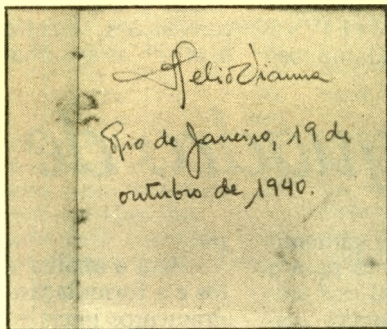 Helio Vianna
Rio de Janeiro, 19 de
outubro de 1940.